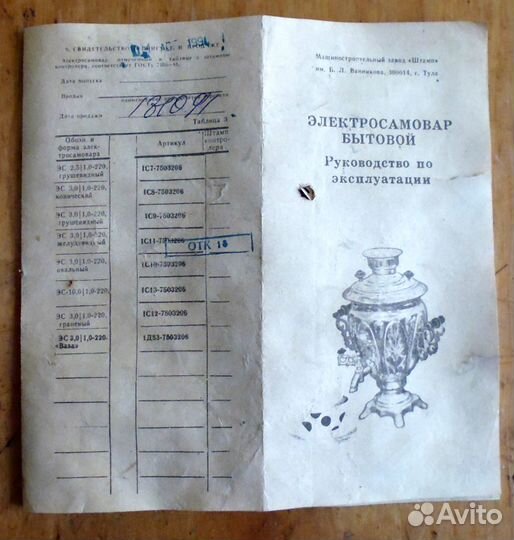 6. СВИДЕТЕЛЬСТВО
1991
Электросамовар,
Дата выпуска
Продан
Дата продажи
131091
Таблица 3
Обозн и форма элек-тросамовара
Артикул
Штамп контро-лера
ЭС 2,5|1,0-220, грушевидный
1С7-7503206
ЭС 3,0|1,0-220, конический
1С8-7503206
ЭС 3,0|1,0-220, грушевидный
1С9-7503206
ЭС 3,0|1,0-220, желудевидный
1С11-7503206
ОТК 18
ЭС 3,0|1,0-220, овальный
1С10-7503206
ЭС-10,0|1,0-220,
1С13-7503206
ЭС 3,0|1,0-220, граненый
1С12-7503206
ЭС 3,0|1,0-220. «Ваза»
1Д53-7503206
Машиностроительный завод «Штамп»
им. Б. Л. Ванникова, 300014, г. Тула
ЭЛЕКТРОСАМОВАР
БЫТОВОЙ
Руководство по
эксплуатации
Avito